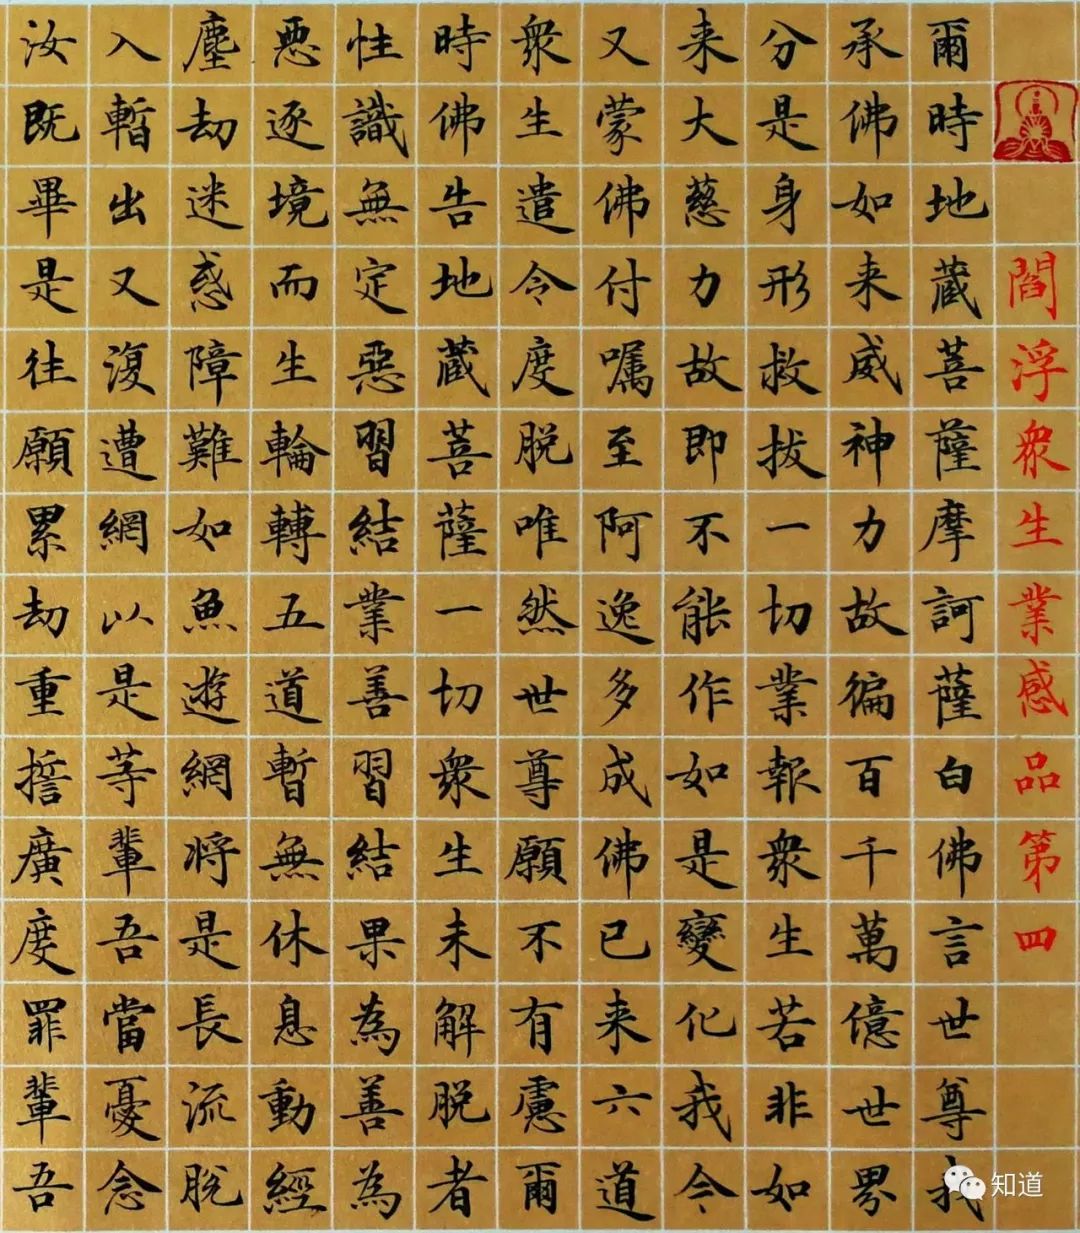 閻浮衆生業感品第四
爾時地蔵菩薩摩訶薩白佛言世尊我
承佛如来威神力故徧百千萬億世界
分是身形救拔一切業報衆生若非如
来大慈力故即不能作如是變化我今
又蒙佛付嘱至阿逸多成佛已来六道
衆生遣令度脱唯然世尊願不有慮爾
時佛告地蔵菩薩一切衆生未解脱者
性識無定惡習結業善習結果為善為
悪逐境而生輪轉五道暫無休息動經
塵劫迷惑障難如魚遊網将是長流脱
入暫出又復遭網以是等輩吾當憂念
汝既畢是往願累劫重誓廣度罪輩吾
知道